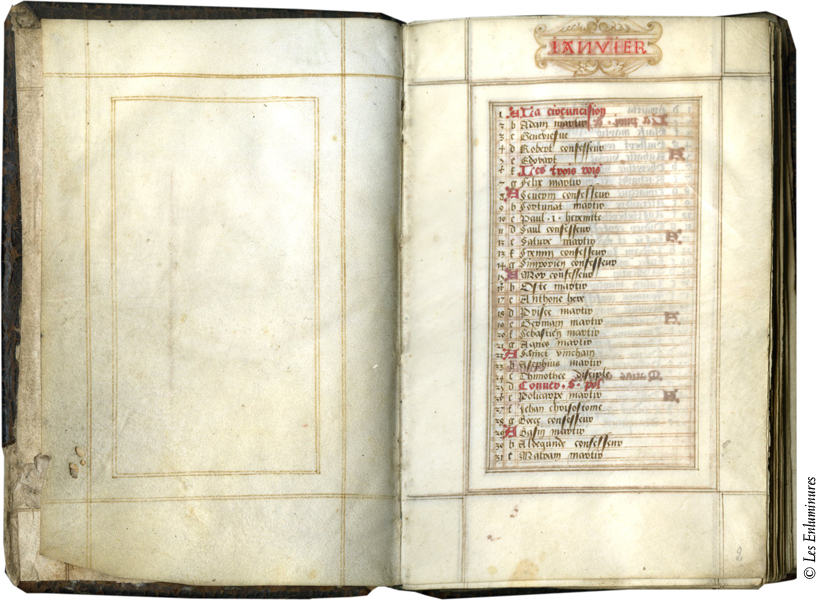 IANVIER
1 A La circuncision
2 b Adam martir
3 c Geneviefue
4 d Robert confesseur
5 e Edovart
6 f Les trois rois
7 g Felix martir
8 A Severin confesseur
9 b Fortunat martir
10 c Paul · 1 · hermite
11 d Saul confesseur
12 e Satire martir
13 f Fremin confesseur
14 g Simporien confesseur
15 A Mor confesseur
16 b martir
17 c Anthone
18 d Prisce martir
19 e Germain martir
20 f Sebastien martir
21 g Agnes martir
22 A Sainct vinchain
23 b martir
24 c Thimothee disciple
25 d Conver · S · pol
26 e Policarpe martir
27 f Jehan chrisostome
28 g confesseur
29 A martir
30 b Aldegunde confesseur
31 c martir
2
© Les Enluminures